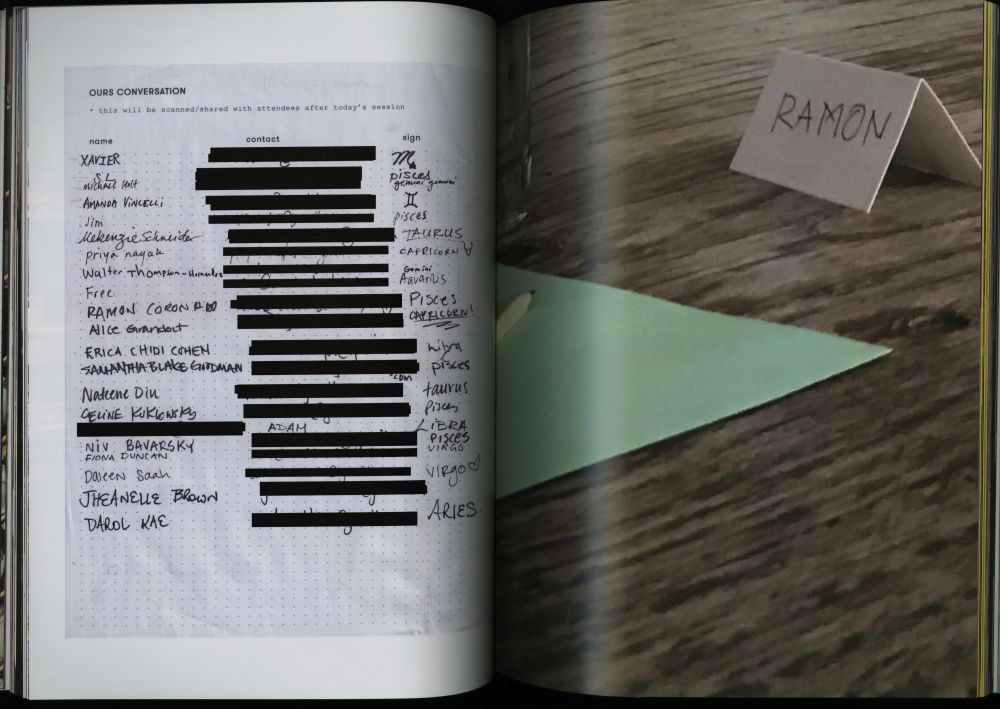 OURS CONVERSATION
* this will be scanned/shared with attendees after today's session
name contact sign
XAVIER ♏
S.L pisces
Michael Holt gemini gemini
AMANDA VINCELLI ♊
Jim pisces
Mekenzie Schneider TAURUS
priya nayak CAPRICORN
Walter Thompson- Gemini
Free Aquarius
RAMON CORONADO PISCES
Alice Grandoit CAPRICORN!
ERICA CHIDI COHEN Libra
SAMANTHA BLAKE GOODMAN pisces
.com
Nateene Diu taurus
CELINE KUKLOWSKY Pisces
ADAM LIBRA
NIV BAVARSKY PISCES
FIONA DUNCAN VIRGO
Dareen Saah virgo♡
JHEANELLE BROWN
DAROL KAE ARIES
RAMON